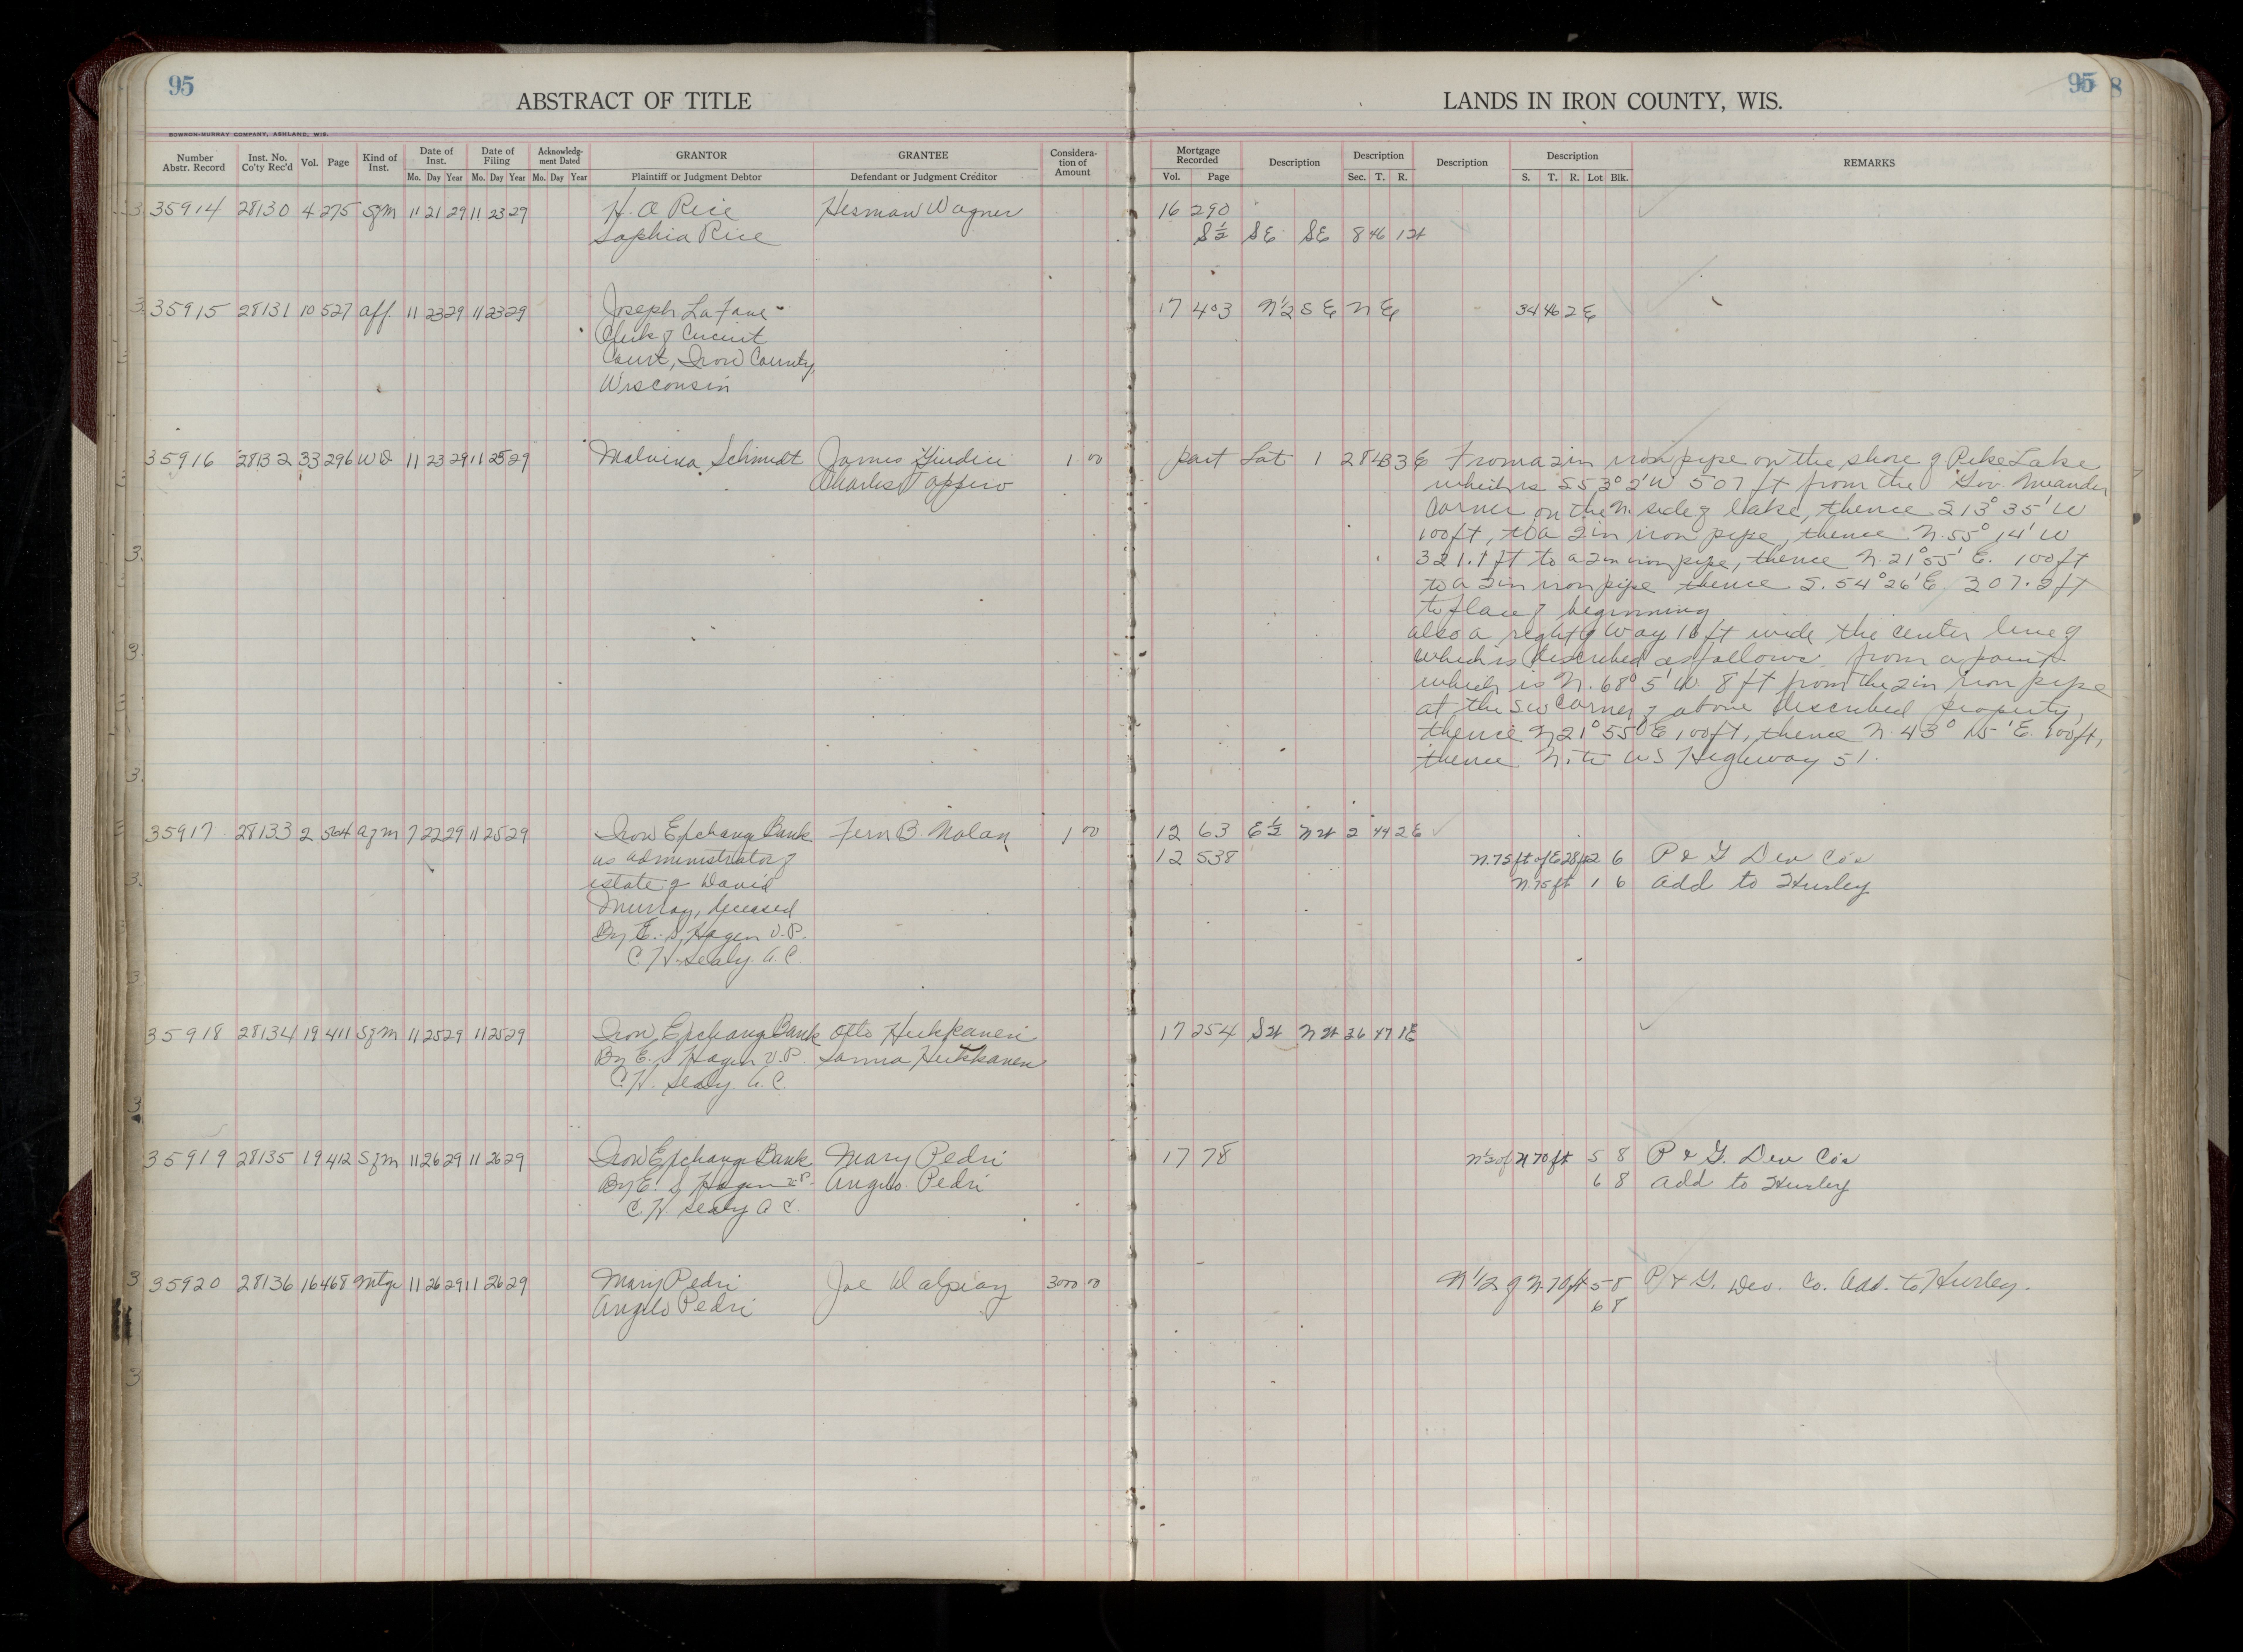 95
ABSTRACT OF TITLE
BOWRON-MURRAY COMPANY, ASHLAND, WIS.
Number Abstr. Record Inst. No. Co'ty Rec'd Vol. Page Kind of Inst. Date of Inst. Date of Filing Acknowledgment Dated GRANTOR GRANTEE Consideration of Amount
Mo. Day Year Mo. Day Year Mo. Day Year Plaintiff or Judgment Debtor Defendant or Judgment Creditor
35914 28130 4 275 Sgm 11 21 29 11 23 29 H. A Rice Herman Wagner
Sophia Rice
35915 28131 10 527 aff. 11 23 29 11 23 29 Joseph La Fave
Clerk of Circuit
Court, Iron County,
Wisconsin
35916 28132 33 296 WD 11 23 29 11 25 29 Malvina Schmidt James Giudici 1 00
Charles
35917 28133 2 564 agm 7 22 29 11 25 29 Iron Exchange Bank Fern B. Nolan 1 00
as administrator of
estate of David
Murray, deceased
By E. S. Hagen V.P.
C. H. Sealy. A.C.
35918 28134 19 411 Sgm 11 25 29 11 25 29 Iron Exchange Bank Otto Huhkanen
By E. S Hagen V.P. Sanna Huhkanen
C. H. Sealy. A.C.
35919 28135 19 412 Sgm 11 26 29 11 26 29 Iron Exchange Bank Mary Pedri
By E. S Hagen V.P. Angelo Pedri
C. H. Sealy A C.
35920 28136 16 468 Mtge 11 26 29 11 26 29 Mary Pedri Joe Dalpiay 3000 00
Angelo Pedri
95
8
LANDS IN IRON COUNTY, WIS.
Mortgage Recorded Description Description Description Description REMARKS
Vol. Page Sec. T. R. S. T. R. Lot Blk.
16 290
S½ SE SE 8 46 1W
17 403 N½ SE NE 34 46 2E
part Lot 1 28 43 3E From a 2 in iron pipe on the shore of Pike Lake
which is S 53° 2' W 507 ft from the Gov. Meander
Corner on the N. side of lake, thence S 13° 35' W
100 ft, to a 2 in iron pipe, thence N. 55° 14' W
321.1 ft to a 2 in iron pipe, thence N. 21° 55' E. 100 ft
to a 2 in iron pipe thence S. 54° 26' E 307.2 ft
to place of beginning
also a right of way 16 ft wide the center line of
which is described as follows from a point
which is N. 68° 5' W 8 ft from the 2 in iron pipe
at the SW corner of above described property,
thence N 21° 55' E 100 ft, thence N. 43° 15' E. 100 ft,
thence N. to US Highway 51.
12 63 E½ NW 2 44 2E
12 538 N. 75 ft of E 28 ft 2 6 P & G Dev Co's
N. 75 ft 1 6 Add to Hurley
17 254 SW NW 36 47 1E
17 78 N½ of N 70 ft 5 8 P & G. Dev Co's
6 8 Add to Hurley
N 1/2 of N. 70 ft 5 8 P. & G. Dev. Co. Add. to Hurley.
6 8